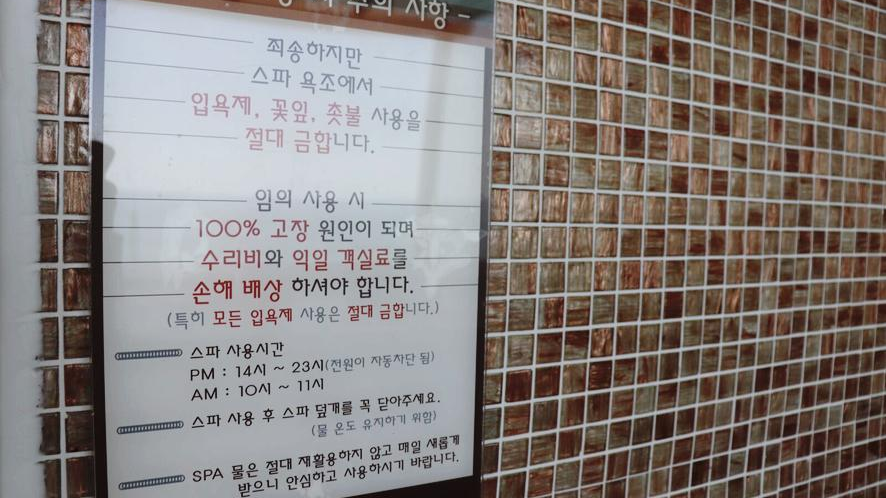 주의 사항 -
죄송하지만
스파 욕조에서
입욕제, 꽃잎, 촛불 사용을
절대 금합니다.
임의 사용 시
100% 고장 원인이 되며
수리비와 익일 객실료를
손해 배상 하셔야 합니다.
(특히 모든 입욕제 사용은 절대 금합니다.)
스파 사용시간
PM : 14시 ~ 23시(전원이 자동차단 됨)
AM : 10시 ~ 11시
스파 사용 후 스파 덮개를 꼭 닫아주세요.
(물 온도 유지하기 위함)
SPA 물은 절대 재활용하지 않고 매일 새롭게
받으니 안심하고 사용하시기 바랍니다.